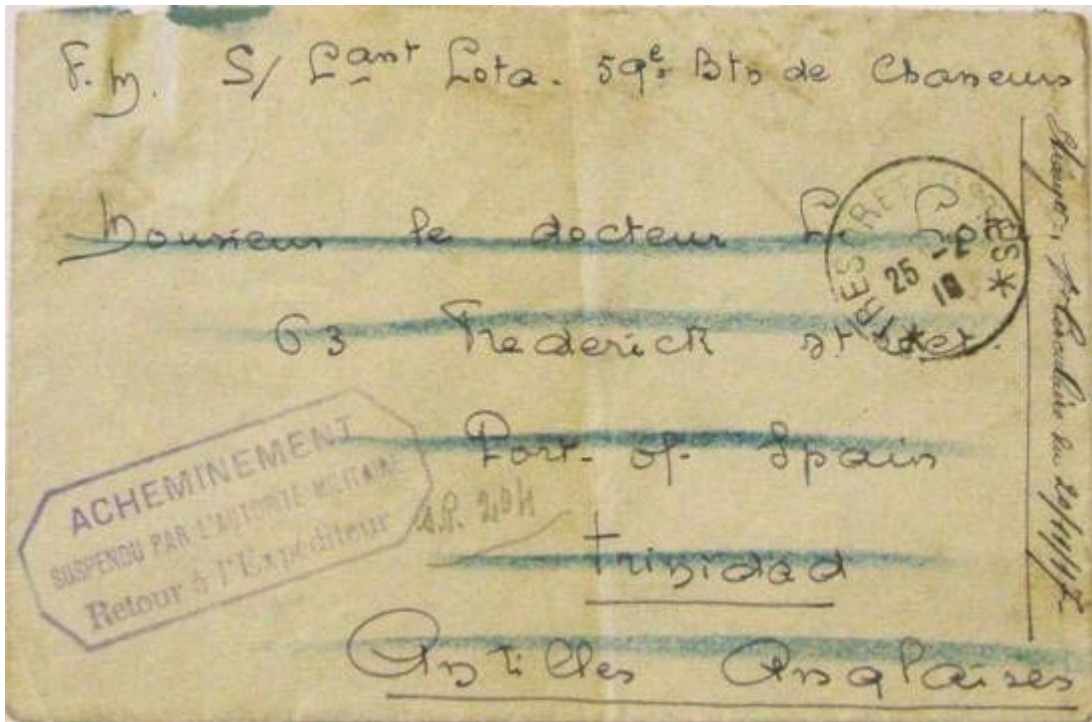 F. M. S/ Lant Lota. 59e Btn de Chasseurs
Monsieur le docteur L. Lota
63 Frederick street.
Port-of-Spain
Trinidad
Antilles Anglaises
ACHEMINEMENT
SUSPENDU PAR L'AUTORITÉ MILITAIRE
Retour à l'Expéditeur
S.P. 204
TRESOR ET POSTES
25 -1
18
circulaire du 20/11/17